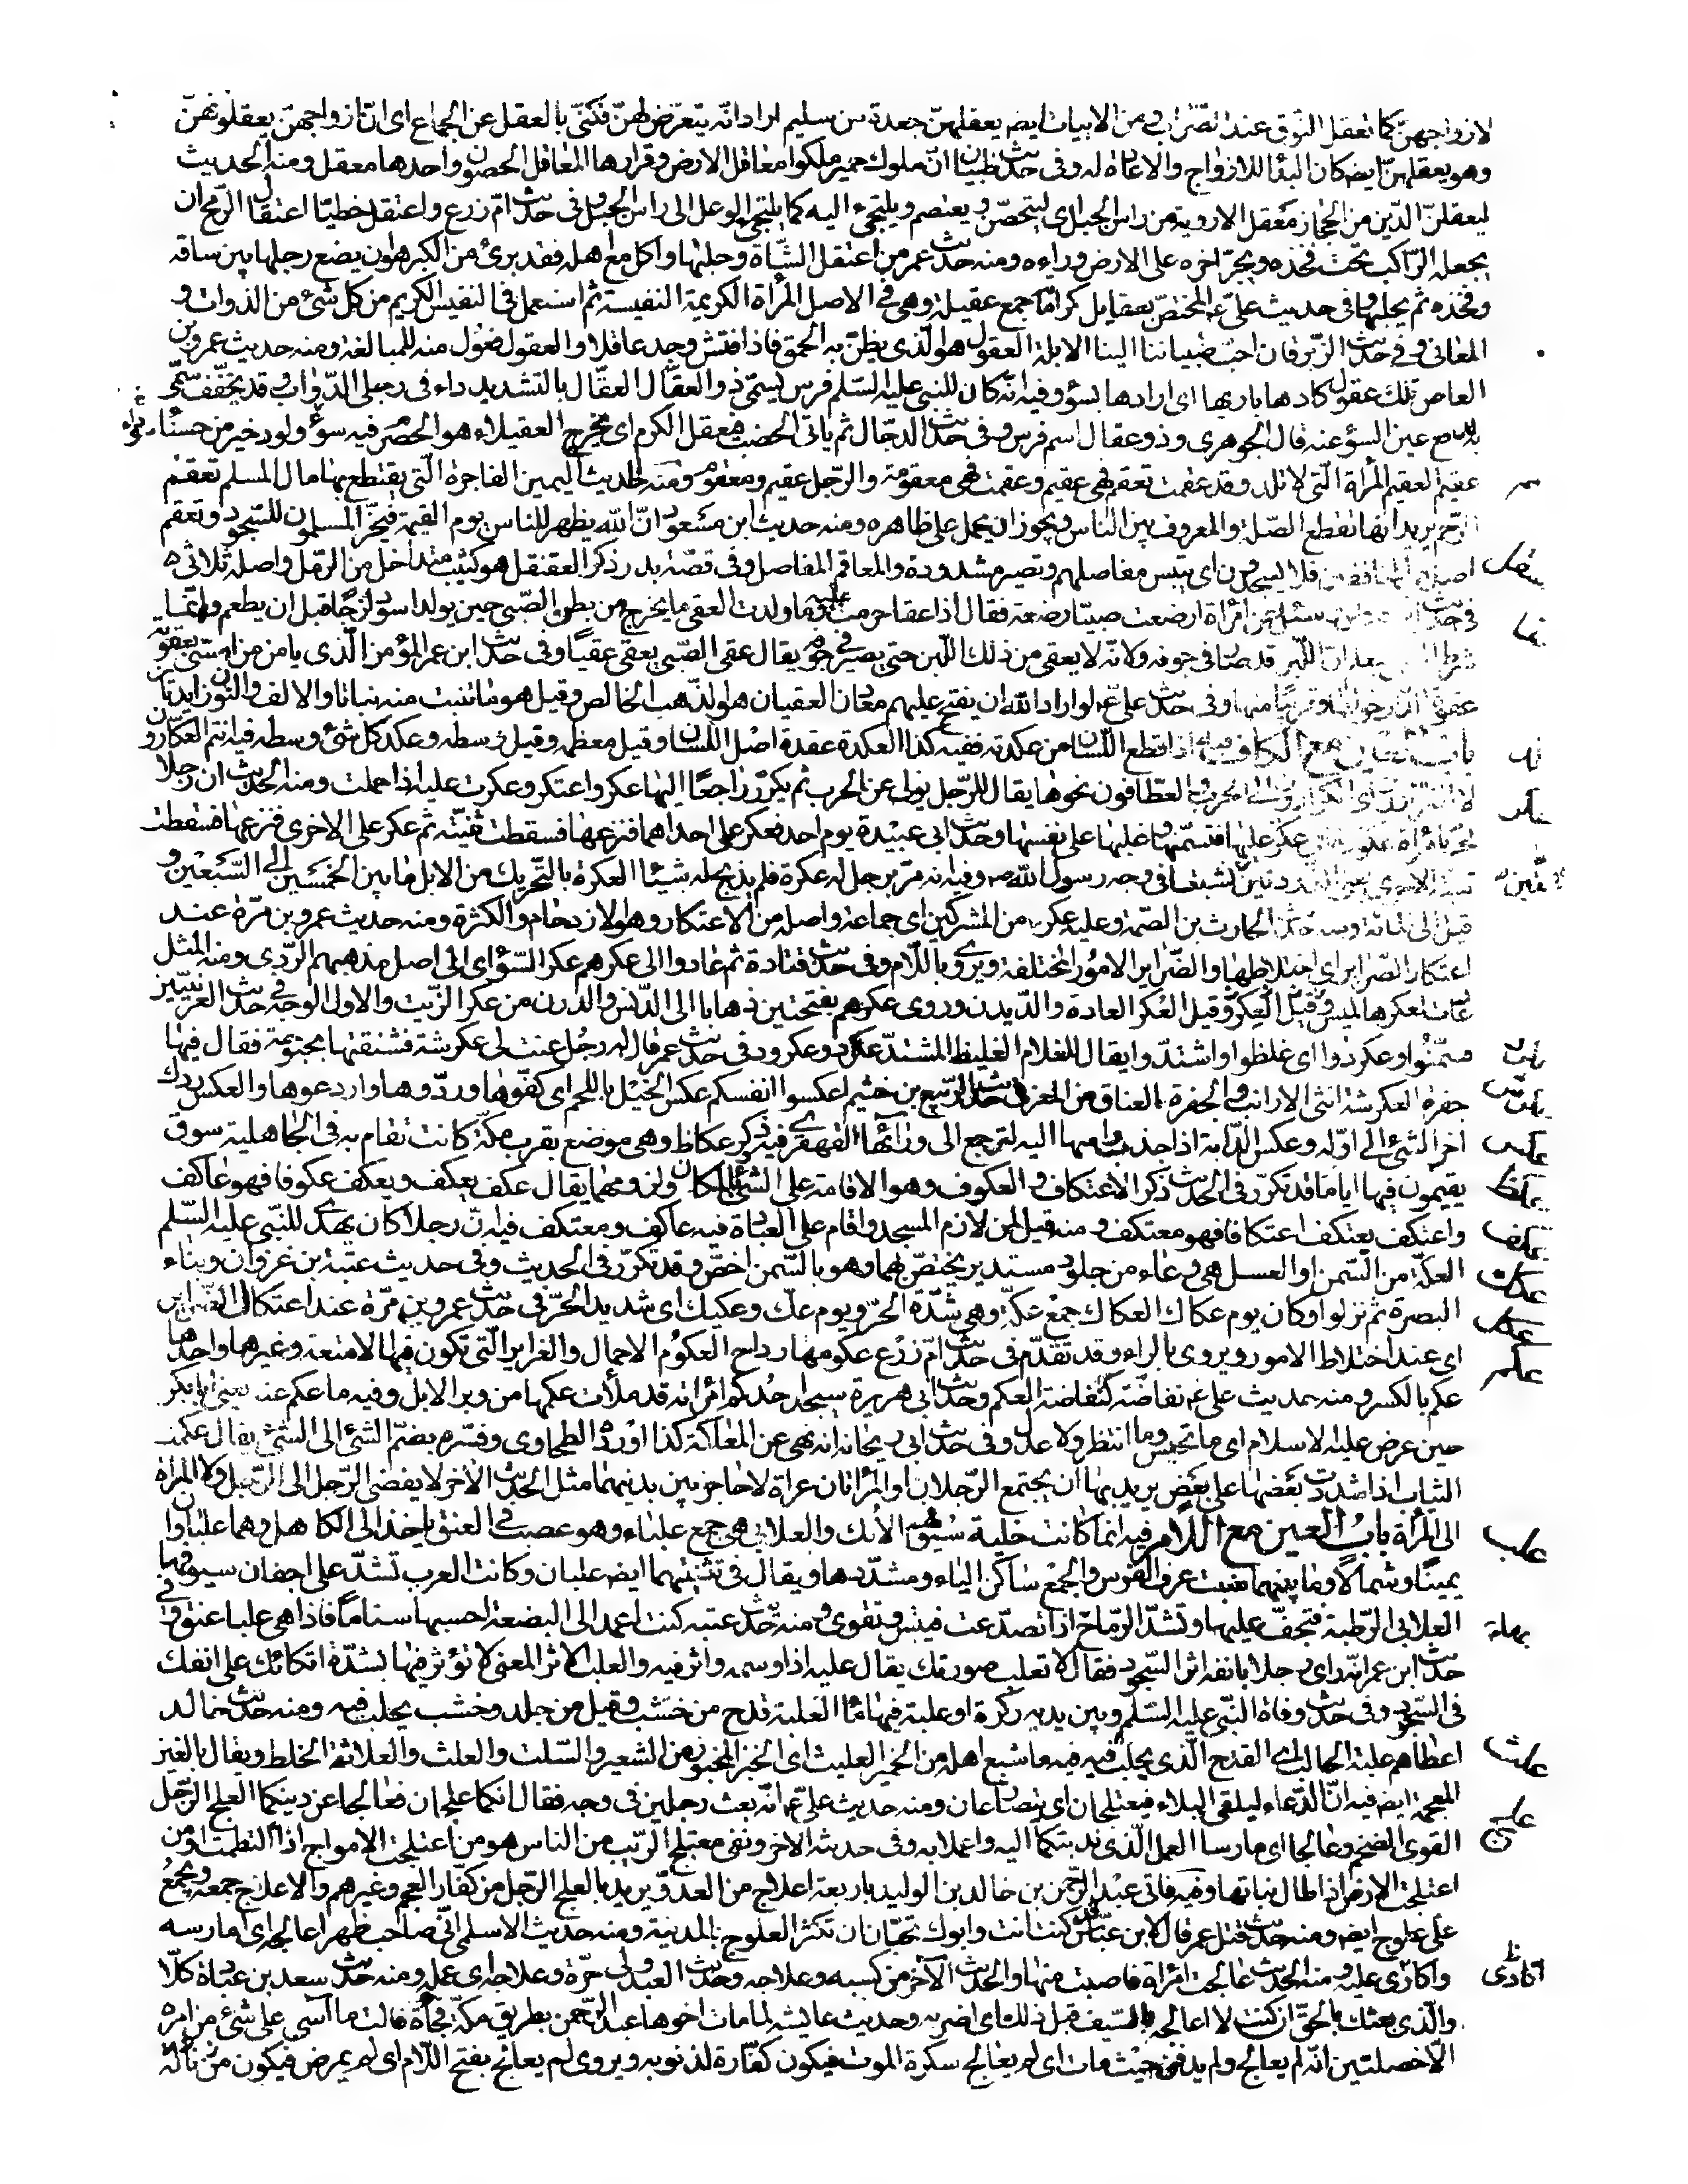 لازواجهن كما تعقل النوق عند الضراب ومن الابيات ايضا يعقلهن جعدة من سليم اراد انه يتعرض لهن فكنى بالعقل عن الجماع اى ان ازواجهن يعقلونهن
وهو يعقلهن ايضا كان البدأ للازواج والاعادة له وفى حديث ظبيان ان ملوك حمير ملكوا معاقل الارض وقرارها المعاقل الحصون واحدها معقل ومنه الحديث
ليعقلن الدين من الحجاز معقل الاروية من راس الجبل اى ليتحصن ويعتصم ويلتجئ اليه كما يلتجئ الوعل الى راس الجبل وفى حديث ام زرع واعتقل خطيا اعتقال الرمح ان
يجعله الراكب تحت فخذه ويجر اخره على الارض وراءه ومنه حديث عمر من اعتقل الشاة وحلبها واكل مع اهله فقد برئ من الكبر هو ان يضع رجلها بين ساقه
وفخذه ثم يحلبها وفى حديث على المختص بعقايل كراماته جمع عقيلة وهى فى الاصل المرأة الكريمة النفيسة ثم استعمل فى النفيس الكريم من كل شئ من الذوات و
المعانى وفى حديث الزبرقان احب صبياننا الينا الابله العقول هو الذى يظن به الحمق فاذا فتش وجد عاقلا والعقول فعول منه للمبالغة ومنه حديث عمرو بن
العاص تلك عقول كادها باريها اى ارادها بسؤ وفيه انه كان للنبى عليه السلم فرس يسمى ذو العقال العقال بالتشديد داء فى رجلى الدواب وقد يخفف سمى
به لدفع عين السؤ عنه قال الجوهرى وذو عقال اسم فرس وفى حديث الدجال ثم ياتى الخصب فيعقل الكرم اى يخرج العقيلاء هو الحصرم فيه سؤاء ولود خير من حسناء
عقيم العقيم المرأة التى لا تلد وقد عقمت تعقم فهى عقيم وعقمت فهى معقومة والرجل عقيم ومعقوم ومنه الحديث اليمين الفاجرة التى يقتطع بها مال المسلم تعقم
الرحم يريد انها تقطع الصلة والمعروف بين الناس ويجوز ان يحمل على ظاهره ومنه حديث ابن مسعود ان الله يظهر للناس يوم القيمة فيخر المسلمون للسجود وتعقم
اصلاب المنافقين فلا يسجدون اى تيبس مفاصلهم وتصير مشدودة والمعاقم المفاصل وفى قصة بدر ذكر العقنقل هو كثيب متداخل من الرمل واصله ثلاثى
فى حديث سئل عن امرأة ارضعت صبيا رضعة فقال اذا عقا حرمت عليه وما ولدت العقى ما يخرج من بطن الصبى حين يولد اسود لزجا قبل ان يطعم وانما
شرط ليعلم ان اللبن قد صار فى جوفه ولانه لا يعقى من ذلك اللبن حتى يصير فى جوفه يقال عقى الصبى يعقى عقيا وفى حديث ابن عمر المؤمن الذى يامن من امسى بعقوته
عقوة الدار حولها وقريبا منها وفى حديث على لو اراد الله ان يفتح عليهم معادن العقيان هو الذهب الخالص وقيل هو ما ينبت منه نباتا والالف والنون زايدتان
باب العين مع الكاف فيه اذا قطع اللسان من عكدته ففيه كذا العكدة عقدة اصل اللسان وقيل معظمه وقيل وسطه وعكد كل شئ وسطه فيه انتم العكارون
لا الفرارون اى الكرارون الى الحرب والعطافون نحوها يقال للرجل يولى عن الحرب ثم يكر راجعا اليها عكر واعتكر وعكرت عليه اذا حملت ومنه الحديث ان رجلا
فجر بامرأة عكورة اى عكر عليها فتسنمها وغلبها على نفسها وحديث ابى عبيدة يوم احد فعكر على احداهما فنزعها فسقطت ثنيته ثم عكر على الاخرى فنزعها فسقطت
ثنيته الاخرى يعنى الزردتين اللتين نشبتا فى وجه رسول الله وفيه انه مر برجل له عكرة فلم يذبح له شيئا العكرة بالتحريك من الابل ما بين الخمسين الى السبعين و
قيل الى المائة ومنه حديث الحارث بن الصمة وعليه عكر من المشركين اى جماعة واصله من الاعتكار وهو الازدحام والكثرة ومنه حديث عمرو بن مرة عند
اعتكار الضراير اى اختلاطها والضراير الامور المختلفة ويروى باللام وفى حديث قتادة ثم عادوا الى عكرهم عكر السؤ اى الى اصل مذهبهم الردى ومنه المثل
عادت لعكرها لميس وقيل العكر العادة والديدن وروى عكرهم بفتحتين ذهابا الى الدنس والدرن من عكر الزيت والاول الوجه فى حديث العرنيين
سمنوا وعكردوا اى غلظوا واشتدوا يقال للغلام الغليظ المشتد عكرد وعكرود فى حديث عمر قال له رجل عنت لى عكرشة فشنقتها بجبوبة فقال فيها
جفرة العكرشة انثى الارانب والجفرة العناق من المعز فى حديث الربيع بن خثيم اعكسوا انفسكم عكس الخيل باللجم اى كفوها وردوها واردعوها والعكس ردك
اخر الشئ الى اوله وعكس الدابة اذا جذب راسها اليه لترجع الى ورائها القهقرى فيه ذكر عكاظ وهى موضع بقرب مكة كانت تقام به فى الجاهلية سوق
يقيمون فيها اياما قد تكرر فى الحديث ذكر الاعتكاف والعكوف وهو الاقامة على الشئ والمكان ولزومهما يقال عكف يعكف ويعكف عكوفا فهو عاكف
واعتكف يعتكف اعتكافا فهو معتكف ومنه قيل لمن لازم المسجد واقام على العبادة فيه عاكف ومعتكف فيه ان رجلا كان يهدى للنبى عليه السلم
العكة من السمن او العسل هى وعاء من جلود مستدير يختص بهما وهو بالسمن اخص وقد تكرر فى الحديث وفى حديث عتبة بن غزوان وبناء
البصرة ثم نزلوا وكان يوم عكاك العكاك جمع عكة وهى شدة الحر ويوم عك وعكيك اى شديد الحر فى حديث عمرو بن مرة عند اعتكال الضراير
اى عند اختلاط الامور ويروى بالراء وقد تقدم فى حديث ام زرع عكومها رداح العكوم الاحمال والغراير التى تكون فيها الامتعة وغيرها واحدها
عكم بالكسر ومنه حديث على نفاضة كنفاضة العكم وحديث ابى هريرة سيجد احدكم امرأته قد ملأت عكمها من وبر الابل وفيه ما عكم عنه يعنى ابا بكر
حين عرض عليه الاسلام اى ما تحبس وما انتظر ولا عدل وفى حديث ابى ريحانة انه نهى عن المعاكمة كذا اورده الطحاوى وفسره بضم الشئ الى الشئ يقال عكمت
الثياب اذا شددت بعضها على بعض يريد بها ان يجتمع الرجلان او المرأتان عراة لا حاجز بين بدنيهما مثل الحديث الاخر لا يفضى الرجل الى الرجل ولا المرأة
الى المرأة باب العين مع اللام فيه انما كانت حلية سيوفهم الآنك والعلابى هى جمع علباء وهو عصب فى العنق ياخذ الى الكاهل وهما علباوان
يمينا وشمالا وما بينهما منبت عرف الفرس والجمع ساكن الياء ومشددها ويقال فى تثنيتهما ايضا علبان وكانت العرب تشد على اجفان سيوفها
العلابى الرطبة فتجف عليها وتشد الرماح اذا تصدعت فتيبس وتقوى ومنه حديث عتبة كنت اعمد الى البضعة احسبها سناما فاذا هى علباء عنق وفى
حديث ابن عمر انه راى رجلا بانفه اثر السجود فقال لا تعلب صورتك يقال عليه اذا وسمه واثر فيه والعلب الاثر المعنى لا تؤثر فيها بشدة اتكائك على انفك
فى السجود وفى حديث وفاة النبى عليه السلم وبين يديه ركوة او علبة فيها ماء العلبة قدح من خشب وقيل من جلد وخشب يحلب فيه ومنه حديث خالد
اعطاهم علبة الحالب اى القدح الذى يحلب فيه فيه ما شبع اهله من الخمير العليث اى الخبز المخبوز من الشعير والسلت والعلث والعلاثة الخلط ويقال بالغين
المعجمة ايضا فيه ان الدعاء ليلقى البلاء فيعتلجان اى يتصارعان ومنه حديث على انه بعث رجلين فى وجه فقال انكما علجان فعالجا عن دينكما العلج الرجل
القوى الضخم وعالجا اى مارسا العمل الذى ندبتكما اليه واعملا به وفى حديثه الاخر ونفى معتلج الريب من الناس هو من اعتلجت الامواج اذا التطمت او من
اعتلجت الارض اذا طال نباتها وفيه فاتى عبد الرحمن بن خالد بن الوليد باربعة اعلاج من العدو يريد بالعلج الرجل من كفار العجم وغيرهم والاعلاج جمعه ويجمع
على علوج ايضا ومنه حديث قتل عمر قال لابن عباس قد كنت انت وابوك تحبان ان تكثر العلوج بالمدينة ومنه حديث الاسلمى انى صاحب ظهر اعالجه اى امارسه
واكارى عليه ومنه الحديث عالجت امرأة فاصبت منها والحديث الآخر من كسبه وعلاجه وحديث العبد ولى حره وعلاجه اى عمله ومنه حديث سعد بن عبادة كلا
والذى بعثك بالحق ان كنت لاعالجه بالسيف قبل ذلك اى اضربه وحديث عايشة لما مات اخوها عبد الرحمن بطريق مكة فجأة قالت ما آسى على شئ من امره
الا خصلتين انه لم يعالج ولم يدفن حيث مات اى لم يعالج سكرة الموت فيكون كفارة لذنوبه ويروى لم يعالج بفتح اللام اى لم يمرض فيكون من ناله